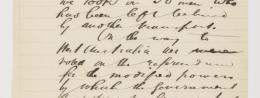 we took on 30 men who
has been left behind
by another transport.
On the way to
West Australia we were
voted on the referendum
for the modified powers
by which the government